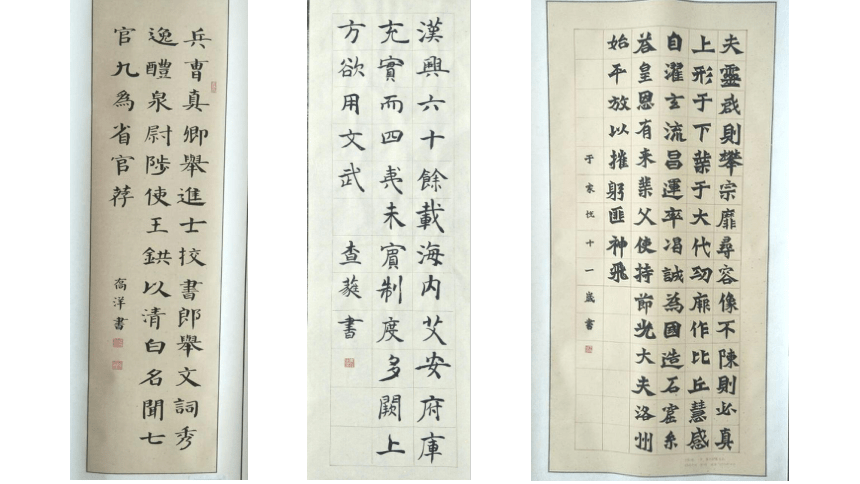 兵曹真卿舉進士挍書郎舉文詞秀
逸醴泉尉陟使王鉷以清白名聞七
官九為省官荐
喬洋書
漢興六十餘載海內艾安府庫
充實而四夷未賓制度多闕上
方欲用文武
查蕤書
夫靈則攀宗靡尋容像不陳則必真
上形于下葉于大代功廝作比丘慧感
自濯玄流昌運率渴誠為國造石窟系
荅皇恩有未葉父使持節光大夫洛州
始平放以摧躬匪神飛
于家忱十一歲書